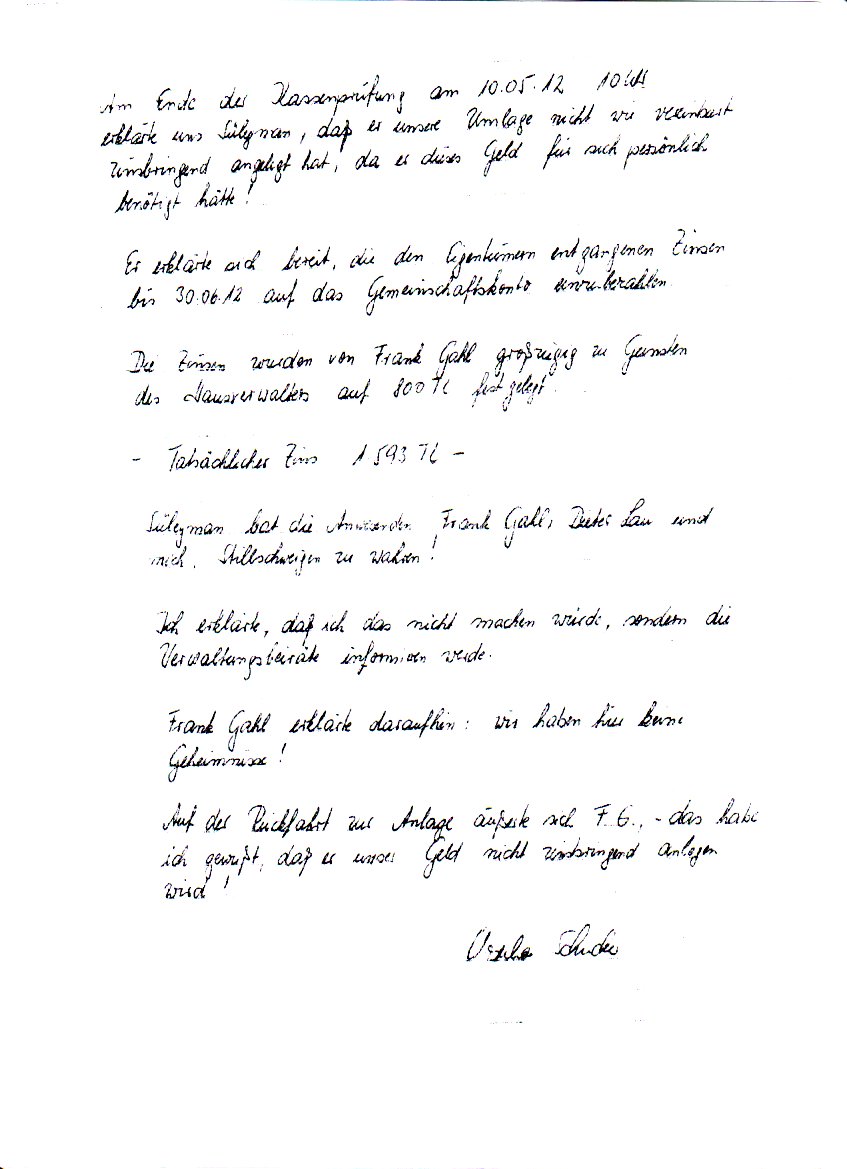 Am Ende der Kassenprüfung am 10.05.12 10 Uhr
erklärte uns Süleyman, daß er unsere Umlage nicht wie vereinbart
zinsbringend angelegt hat, da er dieses Geld für sich persönlich
benötigt hätte!
Er erklärte sich bereit, die den Eigentümern entgangenen Zinsen
bis 30.06.12 auf das Gemeinschaftskonto einzubezahlen.
Die Zinsen wurden von Frank Gahl großzügig zu Gunsten
des Hausverwalters auf 800 TL festgelegt.
- Tatsächlicher Zins 1.593 TL -
Süleyman bat die Anwesenden, Frank Gahl, Dieter Lau und
mich, Stillschweigen zu wahren!
Ich erklärte, daß ich das nicht machen würde, sondern die
Verwaltungsbeiräte informieren werde.
Frank Gahl erklärte daraufhin: wir haben hier keine
Geheimnisse!
Auf der Rückfahrt zur Anlage äußerte sich F. G., - das habe
ich gewußt, daß er unser Geld nicht zinsbringend anlegen
wird!